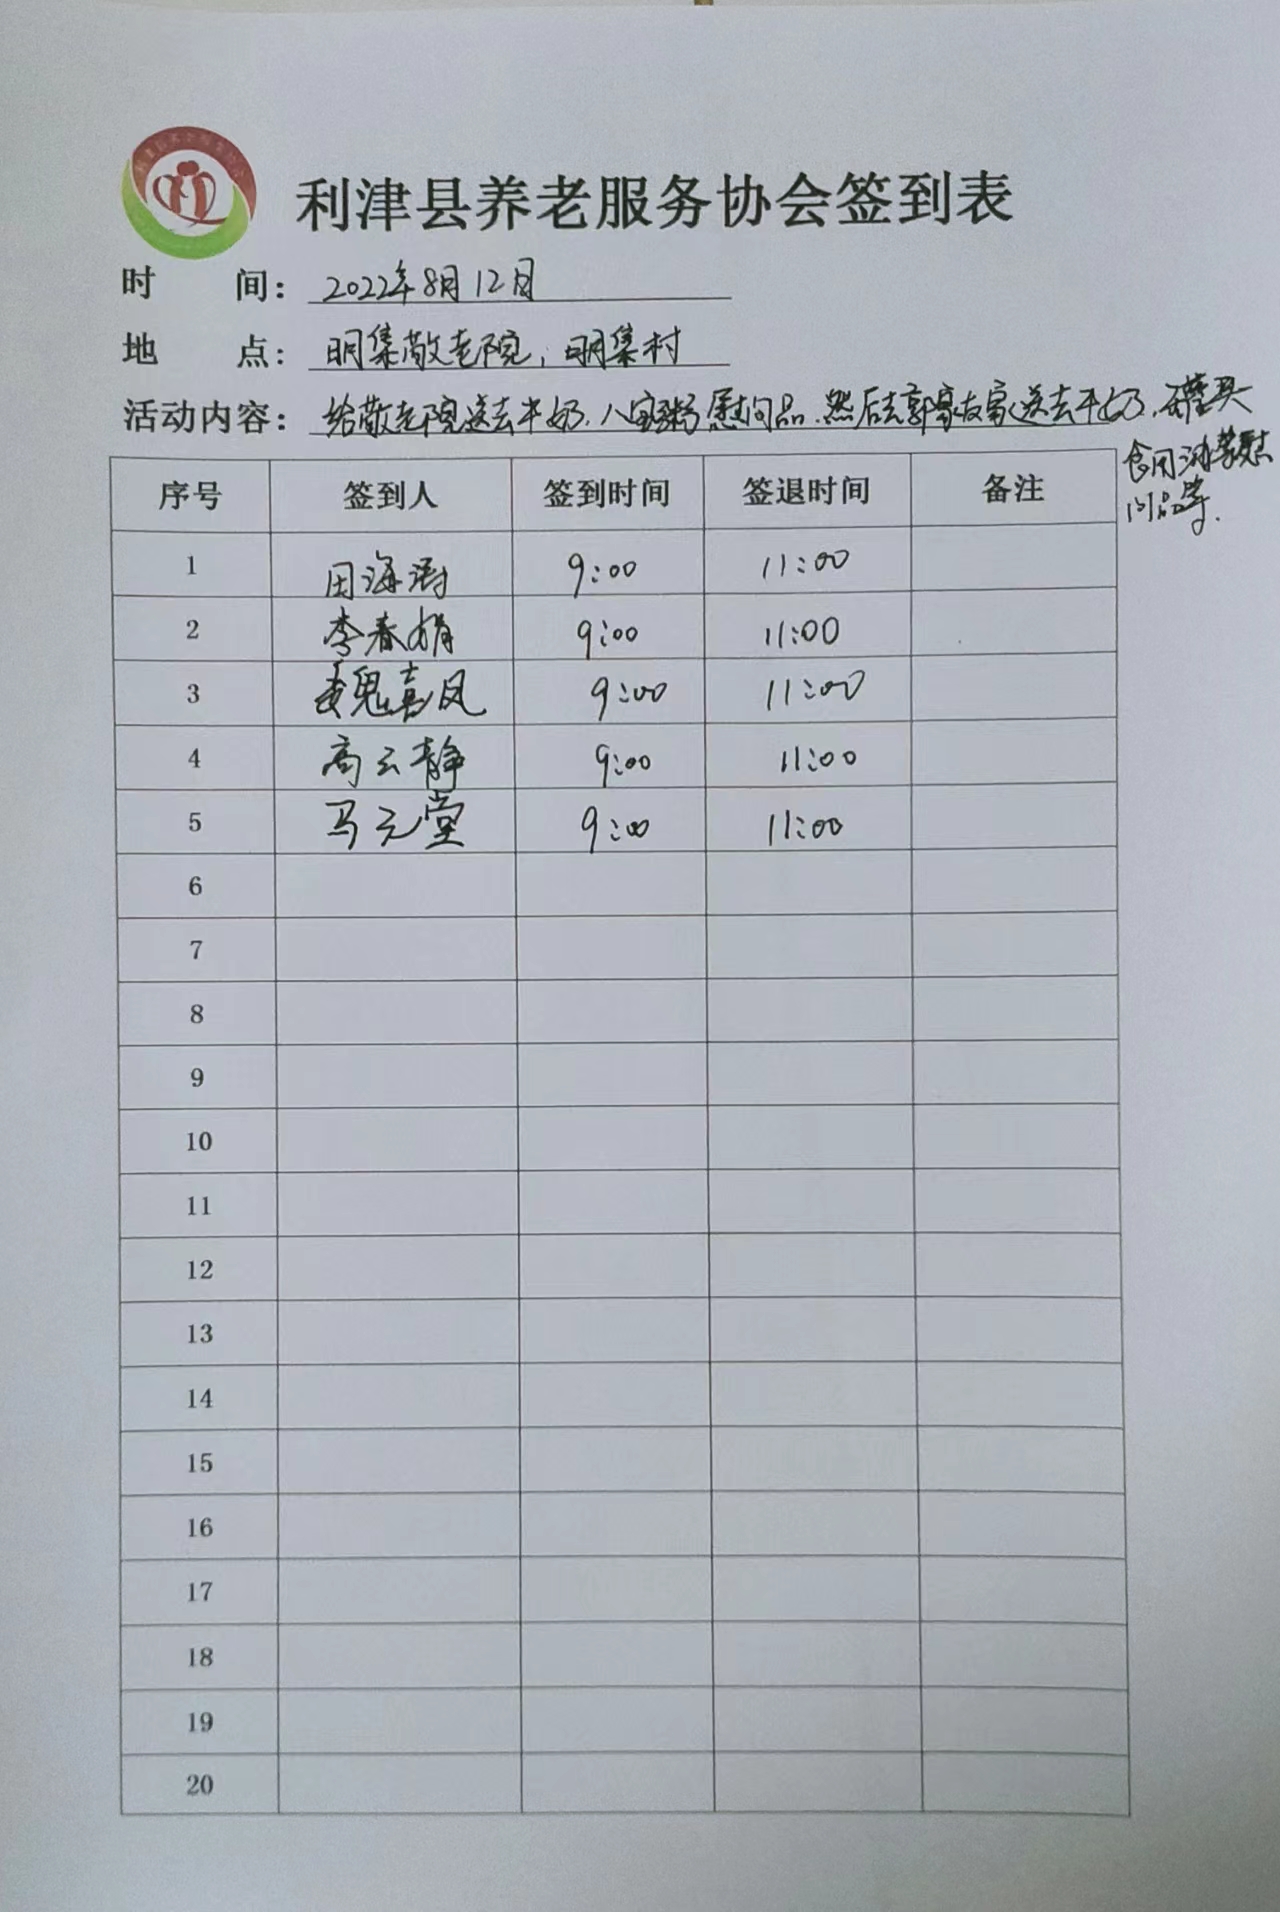 利津县养老服务协会签到表
时 间: 2022年8月12日
地 点: 明集敬老院、明集村
活动内容: 给敬老院送去牛奶、八宝粥慰问品、然后去郭家送去牛奶、罐头
食用油等慰
问品等.
序号 签到人 签到时间 签退时间 备注
1 田海涛 9:00 11:00
2 李春娟 9:00 11:00
3 魏喜凤 9:00 11:00
4 高云静 9:00 11:00
5 马元堂 9:00 11:00
6
7
8
9
10
11
12
13
14
15
16
17
18
19
20